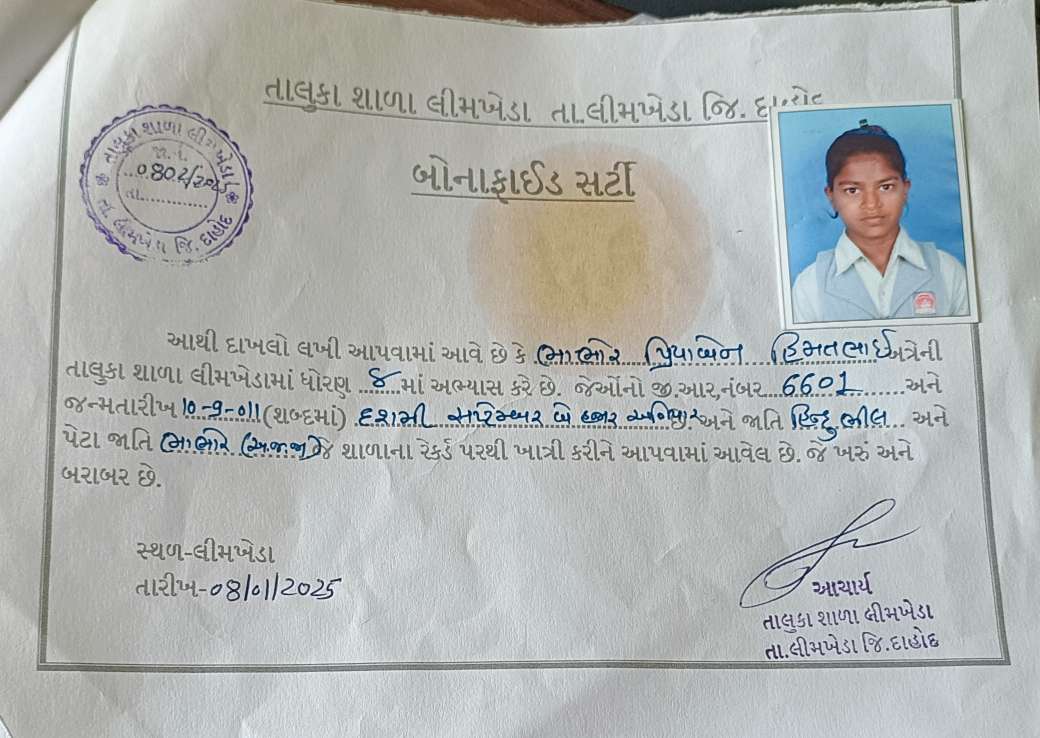 તાલુકા શાળા લીમખેડા તા.લીમખેડા જિ. દાહોદ
તાલુકા શાળા લીમખેડા
જા. નં.
0802/20
તા............
તા. લીમખેડા જિ. દાહોદ
બોનાફાઈડ સર્ટી
આથી દાખલો લખી આપવામાં આવે છે કે ભાભોર પ્રિયાબેન હિમતભાઈ અત્રેની
તાલુકા શાળા લીમખેડામાં ધોરણ ..માં અભ્યાસ કરે છે. જેઓનો જી.આર,નંબર 6601 અને
જન્મતારીખ 10-9-011 (શબ્દમાં) દશમી સપ્ટેમ્બર બે હજાર અગિયાર અને જાતિ હિન્દુ ભીલ અને
પેટા જાતિ ભાભોર (અ.જ.જા) જે શાળાના રેકર્ડ પરથી ખાત્રી કરીને આપવામાં આવેલ છે. જે ખરું અને
બરાબર છે.
સ્થળ-લીમખેડા
તારીખ-08/01/2025
આચાર્ય
તાલુકા શાળા લીમખેડા
તા.લીમખેડા જિ.દાહોદ